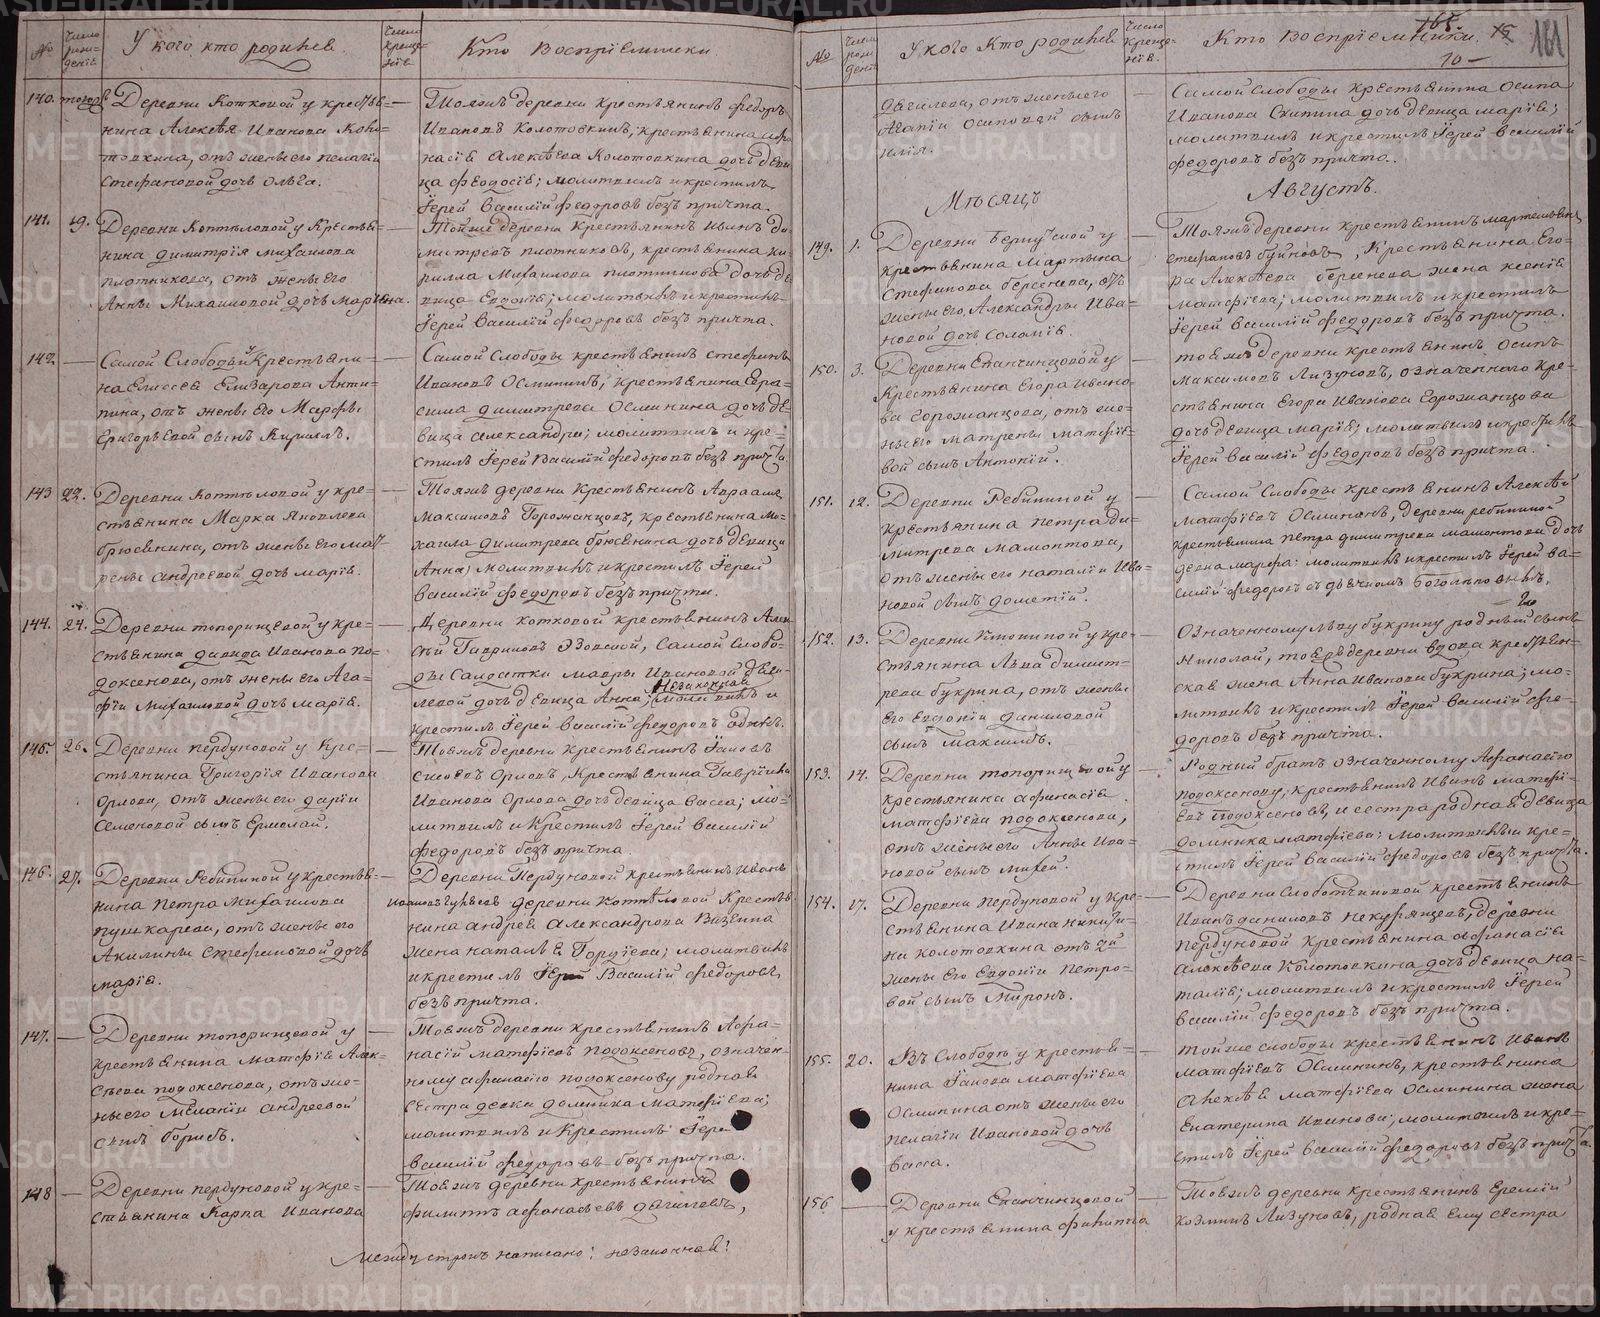 №
Число рождения
У кого кто родился.
Число крещения
Кто Восприемники.
140.
Деревни Котковой у крестья=
нина Алексѣя Иванова Коло=
товкина, отъ жены его пелагіи
Стефановой дочь Ольга.
Тояжъ деревни крестьянинъ федоръ
Ивановъ Колотовкинъ, крестьянина Афа
насія Алексѣева Колотовкина дочь дѣви
ца Феодосія; молитвилъ и крестилъ
Іерей Василій Федоровъ безъ причта.
141. 19.
Деревни Коптѣловой у Крестья=
нина Димитрія Михаилова
плотникова, отъ жены его
Анны Михаиловой дочь Марина.
Тойже деревни Крестьянинъ Иванъ Ди
митріевъ плотниковъ, крестьянина Ки
рилла Михаилова плотникова дочь дѣ
вица Евдокія; молитвилъ и крестилъ
Іерей Василій Федоровъ безъ причта.
142. —
Самой Слободы у Крестьяни=
на Елисея Елизарова Анти=
пина, отъ жены его Марфы
Григорьевой сынъ Кириллъ.
Самой Слободы крестьянинъ Стефанъ
Ивановъ Осмининъ, крестьянина Гера=
сима Димитрева Осминина дочь дѣ=
вица Александра; молитвилъ и кре=
стилъ Іерей Василій Федоровъ безъ причта
143 22.
Деревни Коптѣловой у кре=
стьянина Марка Яковлева
брюсянина, отъ жены его мат=
рены Андреевой дочь марія.
Тояжъ деревни Крестьянинъ Авраамъ
Максимовъ Горожанцовъ, крестьянина Ми=
хаила Димитрева брюсянина дочь дѣвица
Анна; молитвилъ и крестилъ Іерей
Василій Федоровъ безъ причта.
144. 24.
Деревни топорищевой у кре=
стьянина Давида Иванова по=
доксенова, отъ жены его Ага=
фіи Михаиловой дочь марія.
Деревни Котковой крестьянинъ Алек
сѣй Гавриловъ, Самой Слобо=
ды Салдатки мавры Ивановой
незаконная
дочь дѣвица Анна; молитвилъ и
крестилъ Іерей Василій Федоровъ одинъ.
145. 26.
Деревни пердуновой у Кре=
стьянина Григорія Иванова
Орлова, отъ жены его Даріи
Семеновой сынъ Ермолай.
Тояжъ деревни Крестьянинъ Іаковъ
Сысоевъ Орловъ, Крестьянина Гавріила
Иванова Орлова дочь дѣвица Васса; мо=
литвилъ и Крестилъ Іерей Василій
Федоровъ безъ причта.
146. 27.
Деревни Ребининой у крестья=
нина Петра Михаилова
пушкарева, отъ жены его
Акилины Стефановой дочь
марія.
Деревни Пердуновой крестьянинъ Иванъ
деревни Коптѣловой Крестья
нина Андрея Александрова
жена наталья Гордіева; молитвилъ
и крестилъ Іерей Василій Федоровъ
безъ причта.
147. —
Деревни топорищевой у
крестьянина Матфія Алек=
сѣева подоксенова, отъ же=
ны его Меланіи Андреевой
сынъ Борисъ.
Тояжъ деревни крестьянинъ Афа=
насій матфіевъ подоксеновъ, означен=
ному Афанасію подоксенову родная
сестра девка Домника Матфіева;
молитвилъ и Крестилъ Іерей
Василій Федоровъ безъ причта.
148 —
Деревни пердуновой у кре=
стьянина Карпа Иванова
Тояжъ деревни Крестьянинъ
филиппъ Афанасьевъ
между строкъ написано: незаконная:
№
Число рождения
У кого Кто родился
Число крещения.
Кто Восприемники.
165.
161
отъ жены его
Агапіи Осиповой сынъ
Илія.
Самой Слободы Крестьянина Осипа
Иванова дочь дѣвица марія;
молитвилъ и крестилъ Іерей Василій
Федоровъ безъ причта.
Мѣсяцъ
Августъ.
149. 1.
Деревни у
крестьянина Мартына
Стефанова берсенева, отъ
жены его Александры Ива=
новой дочь Соломія.
Тояжъ деревни крестьянинъ
Стефановъ, Крестьянина Его=
ра Алексѣева берсенева жена ксенія
Матфіева; молитвилъ и крестилъ
Іерей Василій Федоровъ безъ причта.
150. 3.
Деревни Епанчинцовой у
Крестьянина Егора Ивано=
ва Горожанцова, отъ же=
ны его матрены матфіе=
вой сынъ Антоній.
тояжъ деревни крестьянинъ Осипъ
Максимовъ Лизуновъ, означенного кре=
стьянина Егора Иванова Горожанцова
дочь дѣвица марія; молитвилъ и крестилъ
Іерей Василій Федоровъ безъ причта.
151. 12.
Деревни Ребининой у
крестьянина петра ди=
митрева мамонтова,
отъ жены его наталіи Ива=
новой сынъ Дометій.
Самой Слободы крестьянинъ Алексѣй
матфіевъ Осминънъ, деревни ребининой
крестьянина петра димитрева мамонтова дочь
девка марфа: молитвилъ и крестилъ Іерей Ва=
силій Федоровъ съ дьячкомъ
152. 13.
Деревни Клюниной у кре=
стьянина Льва димит=
рева букрина, отъ жены
его Евдокіи даниловой
сынъ Максимъ.
Означенному льву букрину родный сынъ
Николай, тояжъ деревни вдова крестьян=
ская жена Анна Иванова букрина; мо=
литвилъ и крестилъ Іерей Василій Фе=
доровъ безъ причта.
153. 14.
Деревни топорищевой у
крестьянина Афанасія
матфіева подоксенова,
отъ жены его Анны Ива=
новой сынъ Михей.
Родный братъ означенному Афанасію
подоксенову, крестьянинъ Иванъ матфі=
евъ Подоксеновъ, и сестра родная дѣвица
домника матфіева; молитвилъ и кре=
стилъ Іерей Василій Федоровъ безъ причта.
154. 17.
Деревни пердуновой у кре=
стьянина Ивана никити=
на колотовкина отъ 2й
жены его Евдокіи Петро=
вой сынъ Миронъ.
Деревни Слободчиковой крестьянинъ
Иванъ даниловъ, деревни
пердуновой крестьянина Афанасія
Алексѣева Колотовкина дочь дѣвица на=
талія; молитвилъ и крестилъ Іерей
Василій Федоровъ безъ причта.
155. 20.
Въ Слободѣ у крестья=
нина Іакова матфіева
Осминина отъ жены его
пелагіи Ивановой дочь
васса.
тойже слободы крестьянинъ Иванъ
матфіевъ Осмининъ, крестьянина
Алексѣя матфіева Осминина жена
Екатерина Иванова; молитвилъ и кре=
стилъ Іерей Василій Федоровъ безъ причта.
156 —
Деревни Епанчинцовой
у крестьянина филиппа
Тояжъ деревни крестьянинъ Еремій
козминъ Лизуновъ, родная ему сестра
METRIKI.GASO-URAL.RU